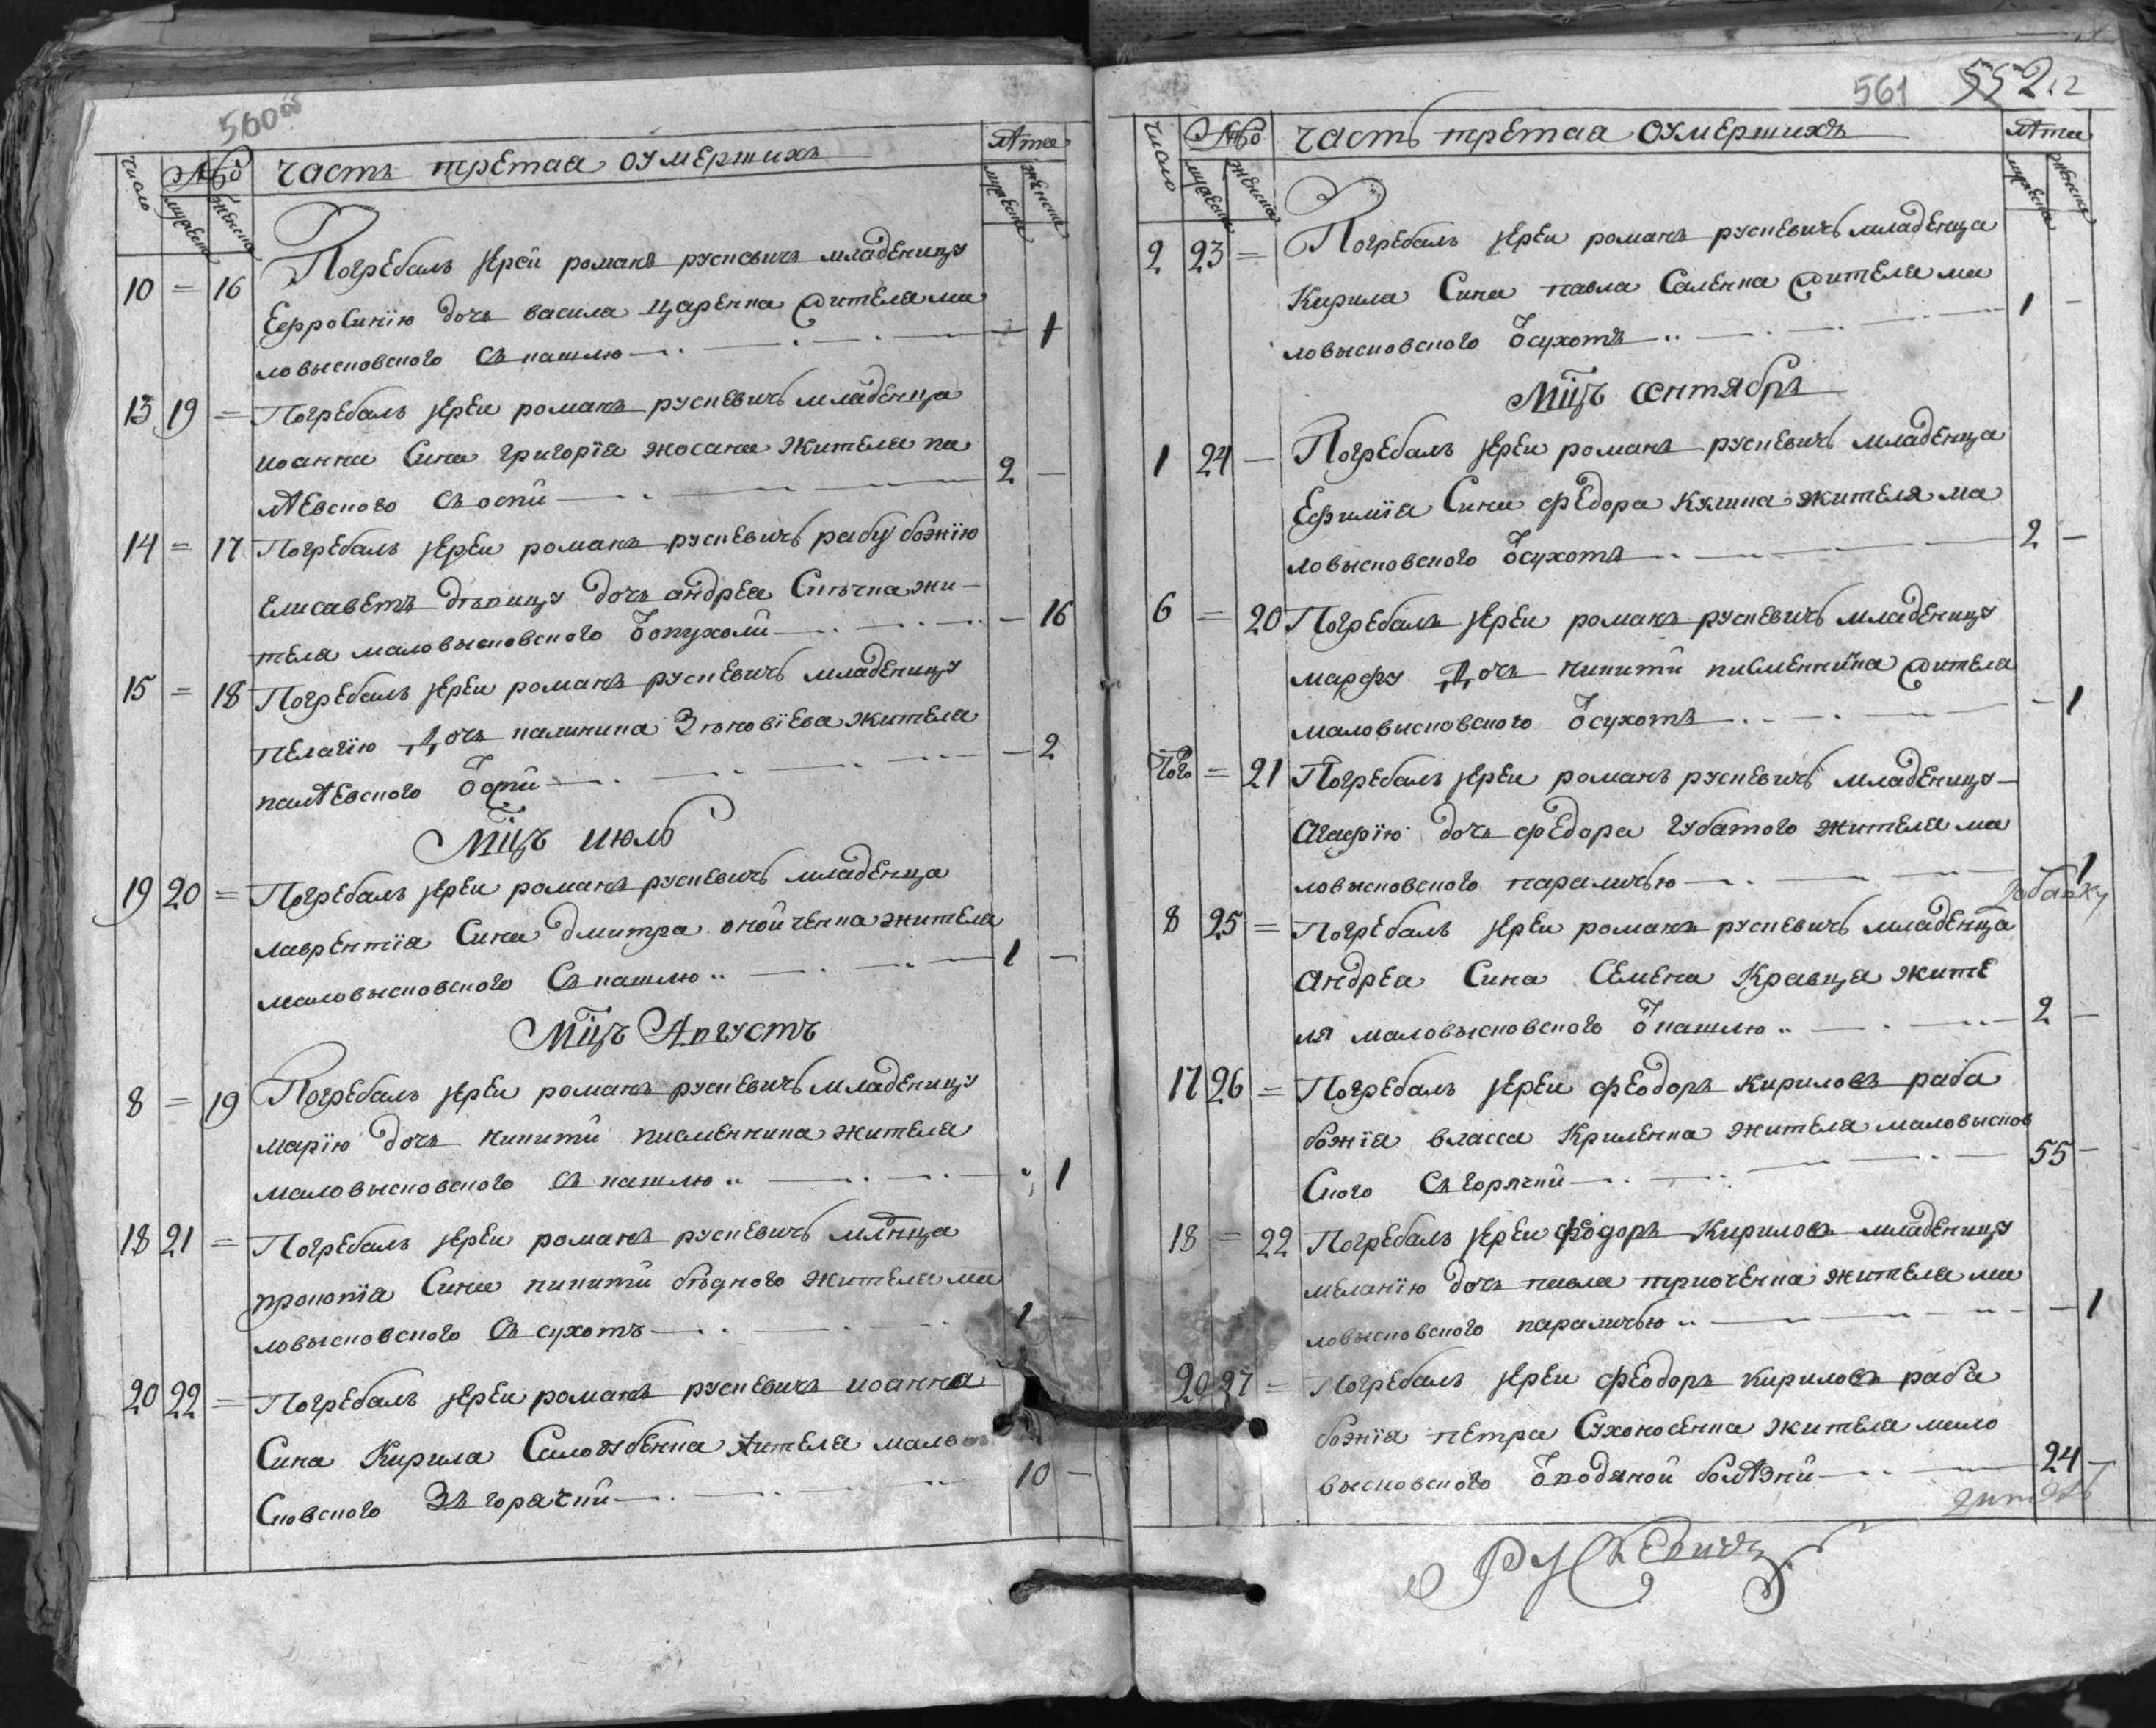 560
Число № часть третаа оумершихъ Лѣта
мужеска женска мужеска женска
10 = 16 Погребалъ їерей романъ рускевичъ младеницу
Еѳросинїю дочь васила Царенка жителя ма
ловысковского съ кашлю — 1
13 19 = Погребалъ їереи романъ рускевичъ младенца
иоанна Сина григорїа жосана жителя па
лѣевского съ оспи 2 —
14 = 17 Погребалъ їереи романъ рускевичъ рабу божїю
Елисаветъ дѣвицу дочь андрея жи
теля маловысковского ѿ опухоли — 16
15 = 18 Погребалъ їереи романъ рускевичъ младеницу
Пелагїю дочь калиника Зѣновїева жителя
палѣевского ѿ оспи — 2
Мцъ июль
19 20 = Погребалъ їереи романъ рускевичъ младенца
лаврентїа Сина дмитра жителя
маловысковского Съ кашлю 1 —
Мцъ Августъ
8 = 19 Погребалъ їереи романъ рускевичъ младеницу
марїю дочь никити писменника жителя
маловысковского съ кашлю 1
18 21 = Погребалъ їереи романъ рускевичъ млнца
прокопїа Сина никити бѣдного жителя ма
ловысковского Съ сухотъ 1 —
20 22 = Погребалъ їереи романъ рускевичъ иоанна
Сина Кирила жителя малов
сковского Зъ горячки 10 —
561 552
Число № часть третаа оумершихъ Лѣта
мужеска женска мужеска женска
2 23 = Погребалъ їереи романъ рускевичъ младенца
Кирила Сина павла Саленка жителя ма
ловысковского ѿ сухотъ 1 —
Мцъ сентябръ
1 24 — Погребалъ їереи романъ рускевичъ младенца
Ефимїа Сина федора Кулика жителя ма
ловысковского ѿ сухотъ 2 —
6 = 20 Погребалъ їереи романъ рускевичъ младеницу
марфу дочь никити писменника жителя
маловысковского ѿ сухотъ — 1
Того = 21 Погребалъ їереи романъ рускевичъ младеницу
агафїю дочь федора губатого жителя ма
ловысковского параличью 1
8 25 = Погребалъ їереи романъ рускевичъ младенца
андреа Сина Семена Кравца жите
ля маловысковского ѿ кашлю 2 —
17 26 = Погребалъ їереи феодоръ кириловъ раба
божїа власса Криленка жителя маловысков
Ского Съ горячки 55 —
18 = 22 Погребалъ їереи Феодоръ Кириловъ младеницу
меланїю дочь павла жителя ма
ловысковского параличью — 1
20 27 = Погребалъ їереи феодоръ кириловъ раба
божїа петра Сухоносенка жителя мало
высковского ѿ водяной болѣзни 24 —
Рускевичъ